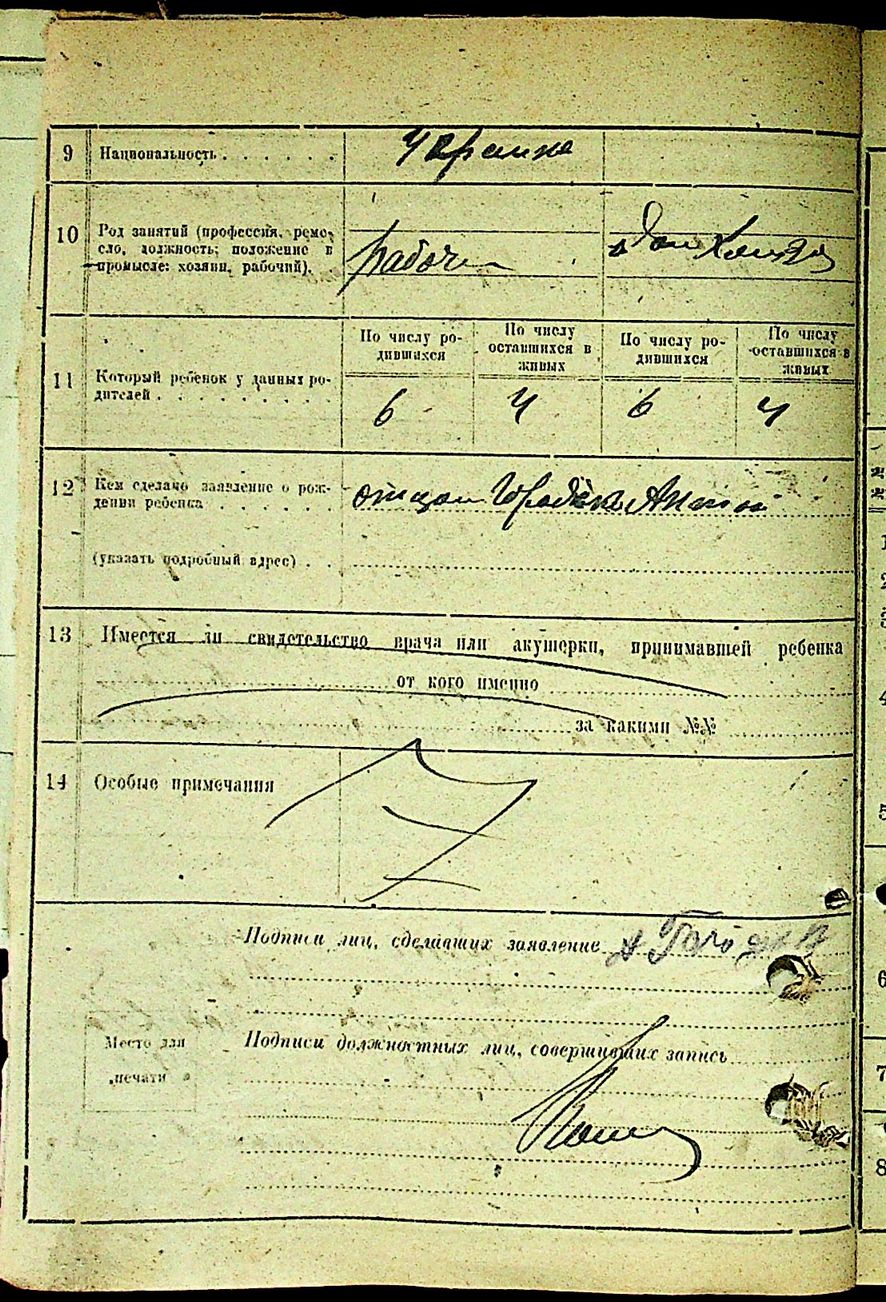 9 Национальность . . . . . . Украине
10 Род занятий (профессия, реме-
сло, должность; положение в
промысле: хозяин, рабочий).
рабоч Дом Хоз
По числу ро-
дившихся
По числу
оставшихся в
живых
По числу ро-
дившихся
По числу
оставшихся в
живых
11 Который ребенок у данных ро-
дителей . . . . . . . . .
6 4 6 4
12 Кем сделано заявление о рож-
дении ребенка . . . . . .
отцом
(указать подробный адрес) . .
13 Имеется ли свидетельство врача или акушерки, принимавшей ребенка
от кого именно
за какими №№
14 Особые примечания
Подписи лиц, сделавших заявление
Место для
печати
Подписи должностных лиц, совершивших запись